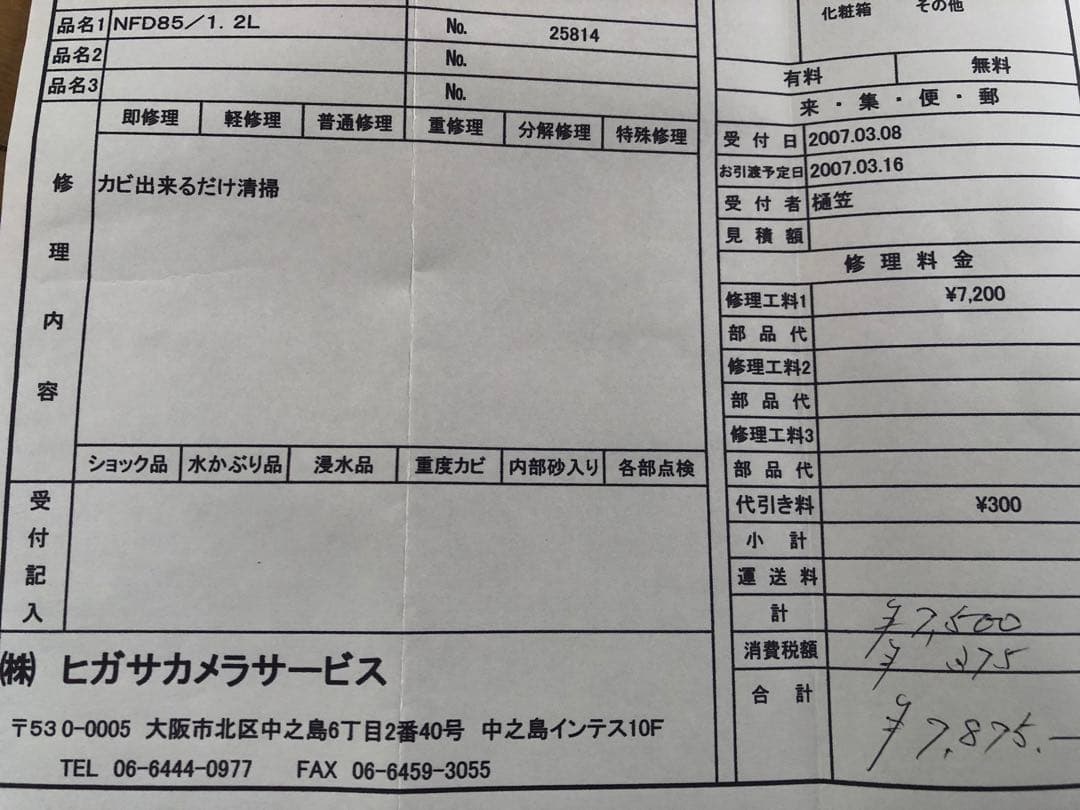 化粧箱 その他
品名1 NFD85／1．2L No. 25814
品名2 No.
品名3 No.
有料 無料
来・集・便・郵
即修理 軽修理 普通修理 重修理 分解修理 特殊修理
修理内容
カビ出来るだけ清掃
受付日 2007.03.08
お引渡予定日 2007.03.16
受付者 樋笠
見積額
修理料金
修理工料1 ¥7,200
部品代
修理工料2
部品代
修理工料3
部品代
代引き料 ¥300
小計
運送料
計 ¥7,500
消費税額 ¥375
合計 ¥7,875.—
ショック品 水かぶり品 浸水品 重度カビ 内部砂入り 各部点検
受付記入
㈱ ヒガサカメラサービス
〒530-0005 大阪市北区中之島6丁目2番40号 中之島インテス10F
TEL 06-6444-0977 FAX 06-6459-3055